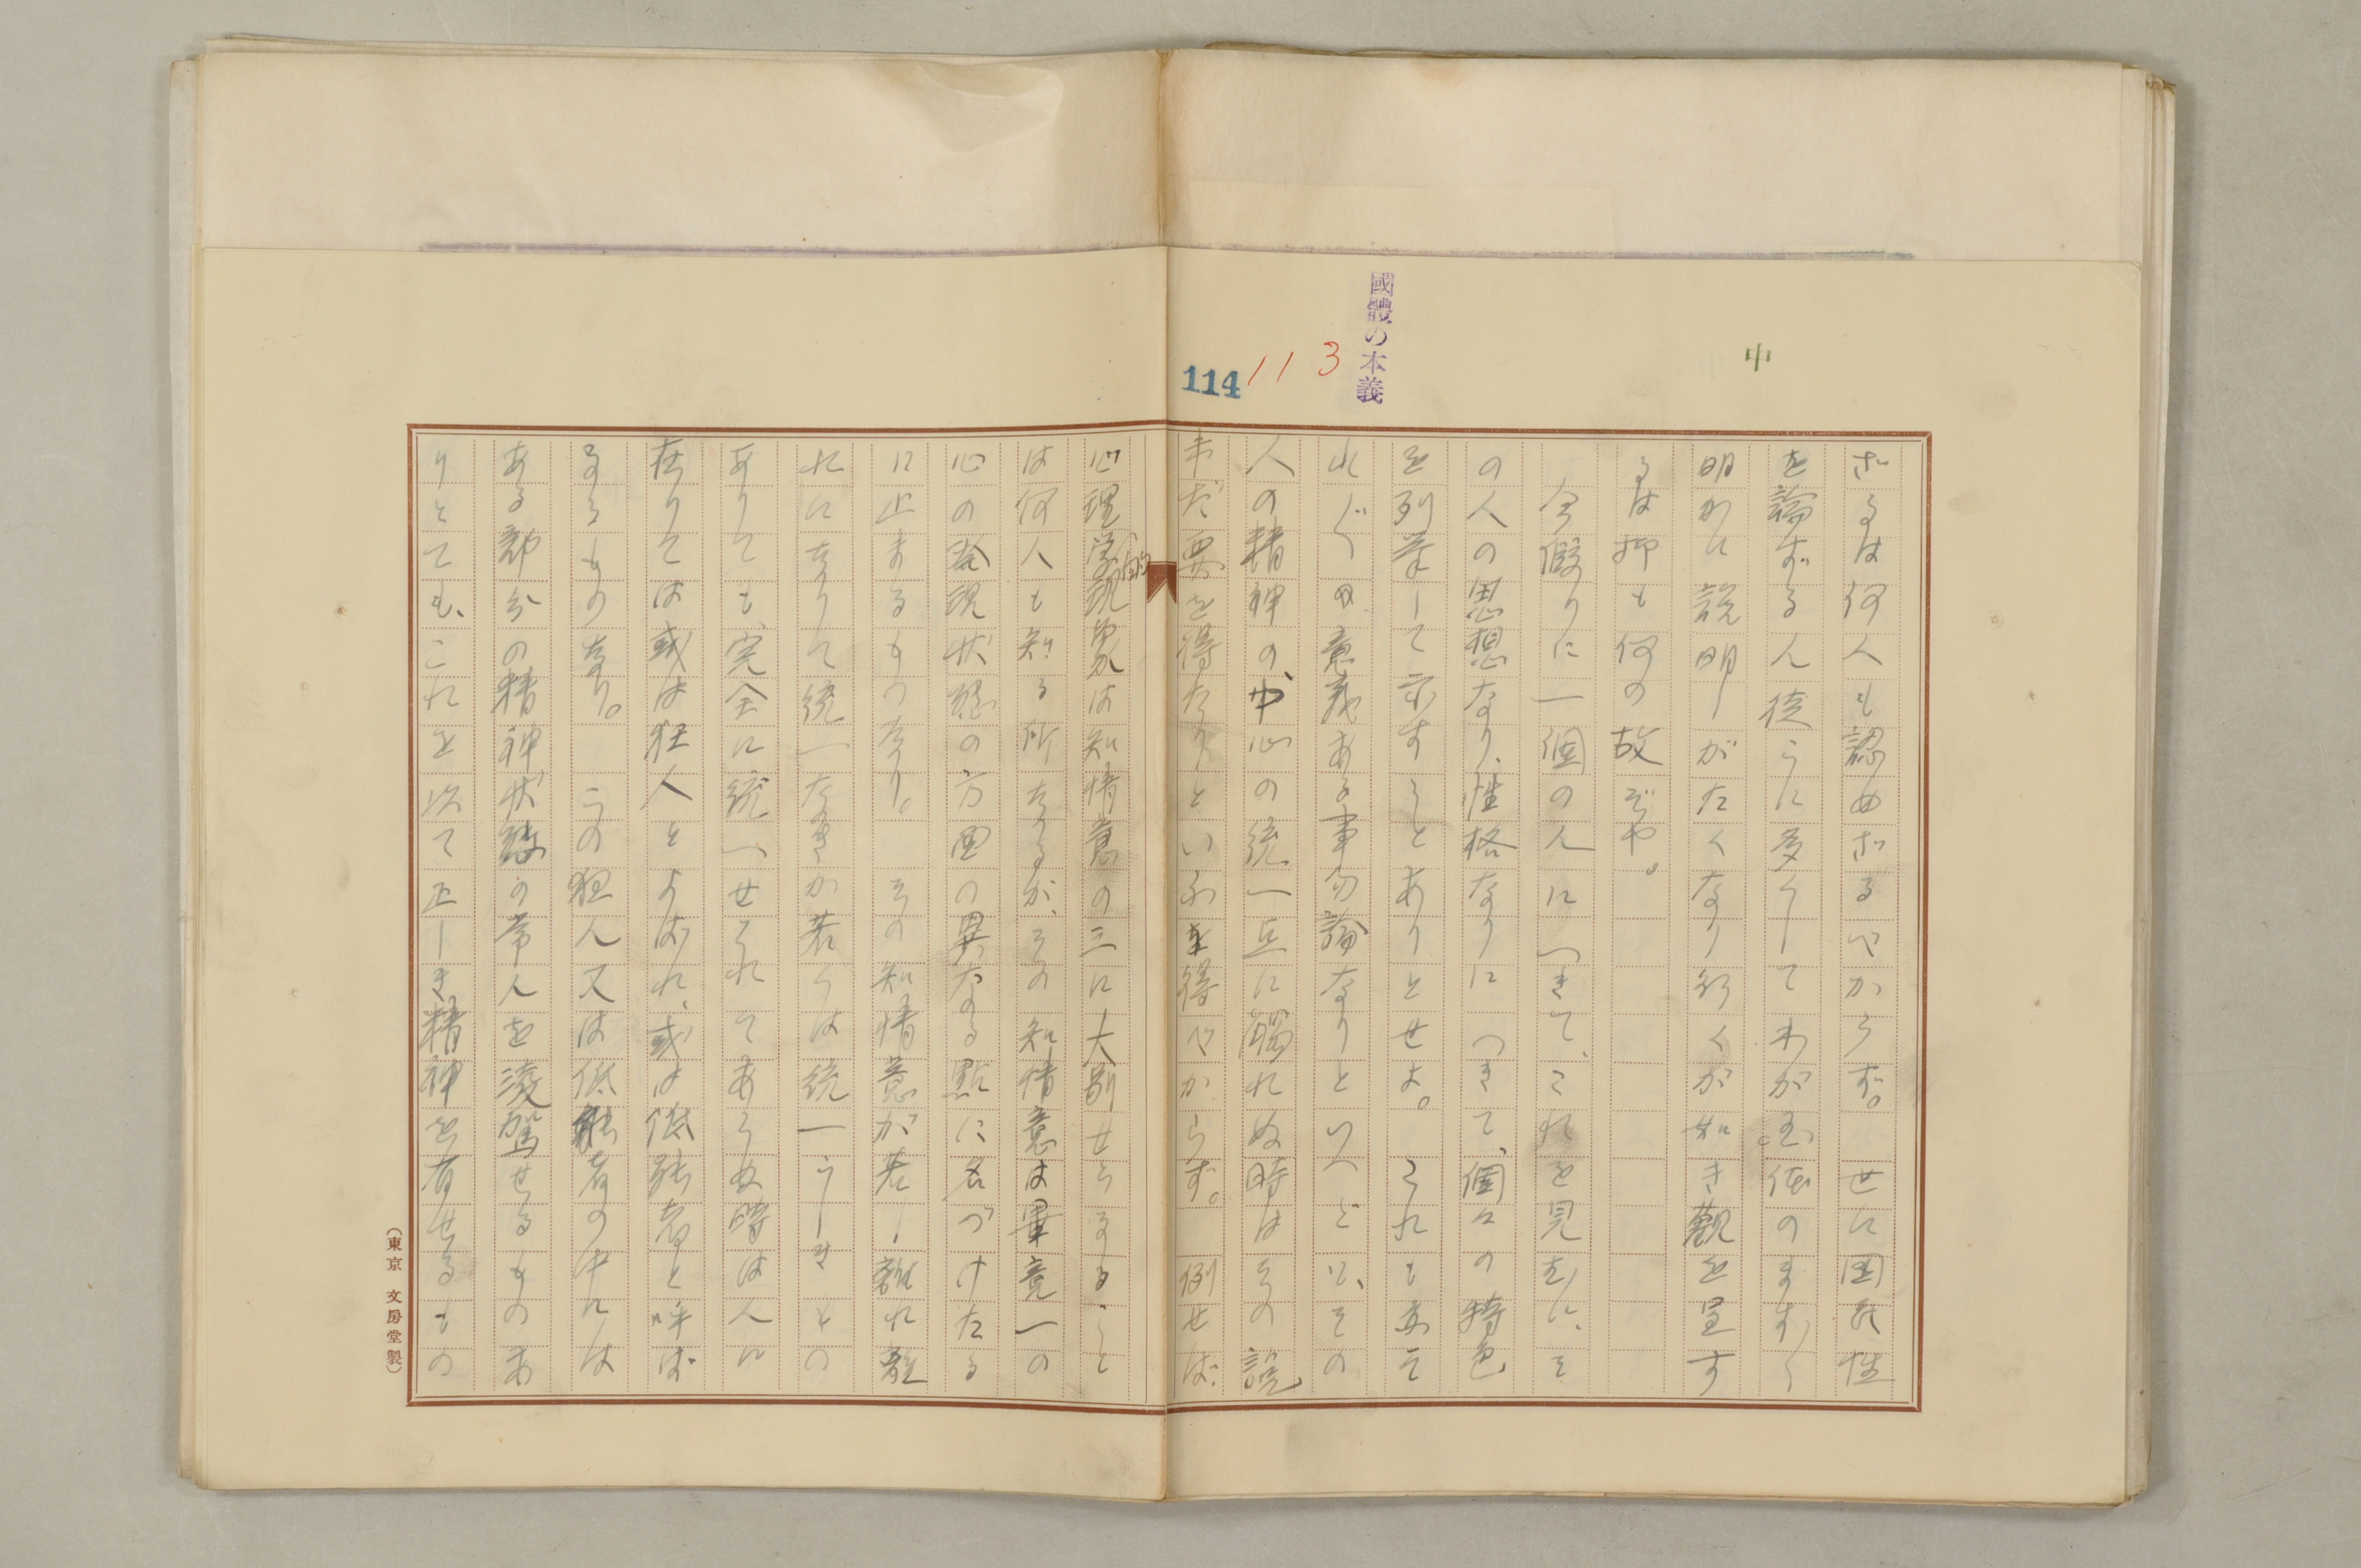 中
國體の本義
113
114
ざるは何人も認めざるべからず。　世に国民性
を論ずる人徒らに多くしてわが国体のますく
明かに説明しがたくなり行くが如き觀を呈す
るは抑も何の故ぞや。
今假りに一個の人につきて、これを見むに、そ
の人の思想なり、性格なりにつきて、個々の特色
を列挙して示すことありとせよ。　これも亦そ
れぐ 意義ある事勿論なりといへども、その
人の精神の、中心の統一点に觸れぬ時はその説
未だ要を得たりといふを得べからず。　例せば、
心理学的現象は知情意の三に大別せらるゝこと
は何人も知る所なるが、その知情意は畢竟一の
心の発現状態の方面の異なる點に名づけたる
に止まるものなり。　その知情意が若し離れ離
れになりて統一なきか若くは統一らしきもの
ありても、完全に統一せられてあらぬ時は人に
在りては或は狂人とよばれ、或は低能者と呼ば
るるものなり。　この狂人又は低能者の中には
ある部分の精神状態の常人を凌駕せるものあ
りとても、これを以て正しき精神を有せるもの
（東京　文房堂製）